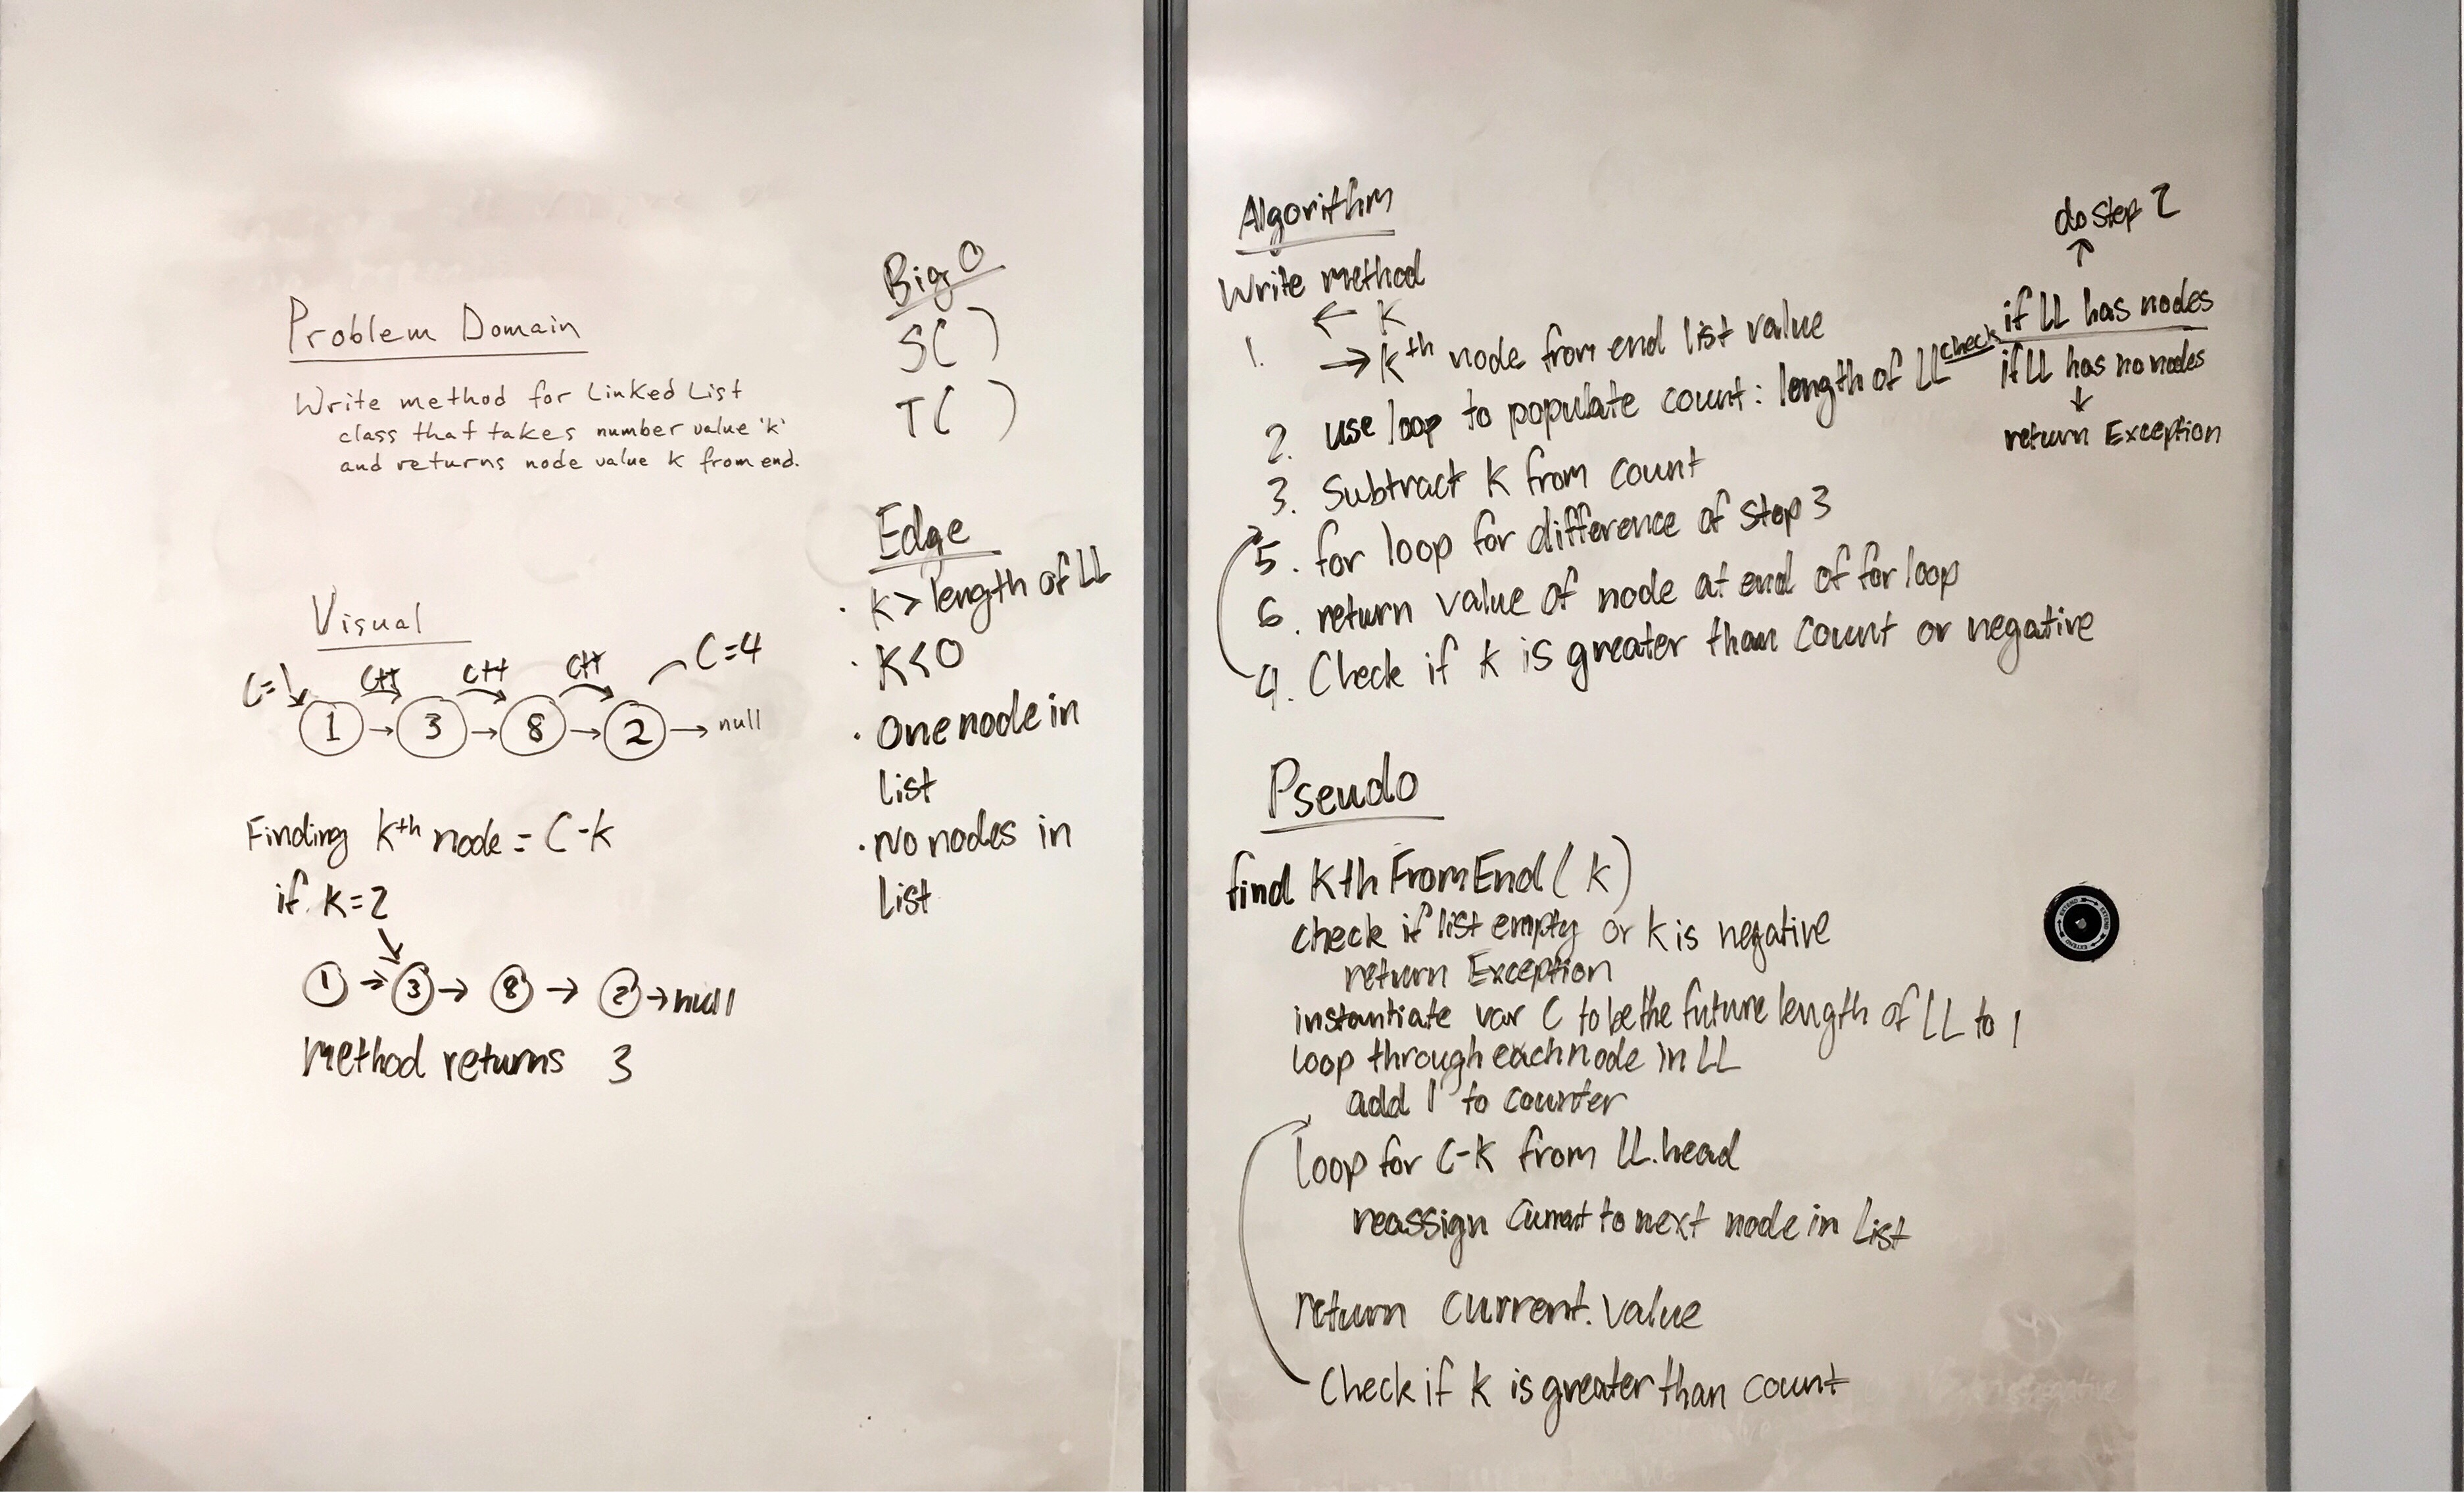 Problem Domain
Write method for Linked List
class that takes number value 'k'
and returns node value k from end.
Visual
C=1 C++ C++ C++ C=4
1 → 3 → 8 → 2 → null
Finding kth node = C-k
if k=2
1 → 3 → 8 → 2 → null
Method returns 3
Big O
S( )
T( )
Edge
· k > length of LL
· k<0
· One node in
list
· No nodes in
list
Algorithm
Write method
1. ← k
→ kth node from end list value
2. use loop to populate count: length of LL check
do step 2
↑
if LL has nodes
if LL has no nodes
↓
return Exception
3. Subtract k from count
5. for loop for difference of step 3
6. return value of node at end of for loop
4. Check if k is greater than count or negative
Pseudo
find KthFromEnd(k)
check if list empty or k is negative
return Exception
instantiate var C to be the future length of LL to 1
loop through each node in LL
add 1 to counter
loop for C-k from LL.head
reassign Current to next node in List
return current.value
Check if k is greater than count
EXTEND EXTEND EXTEND